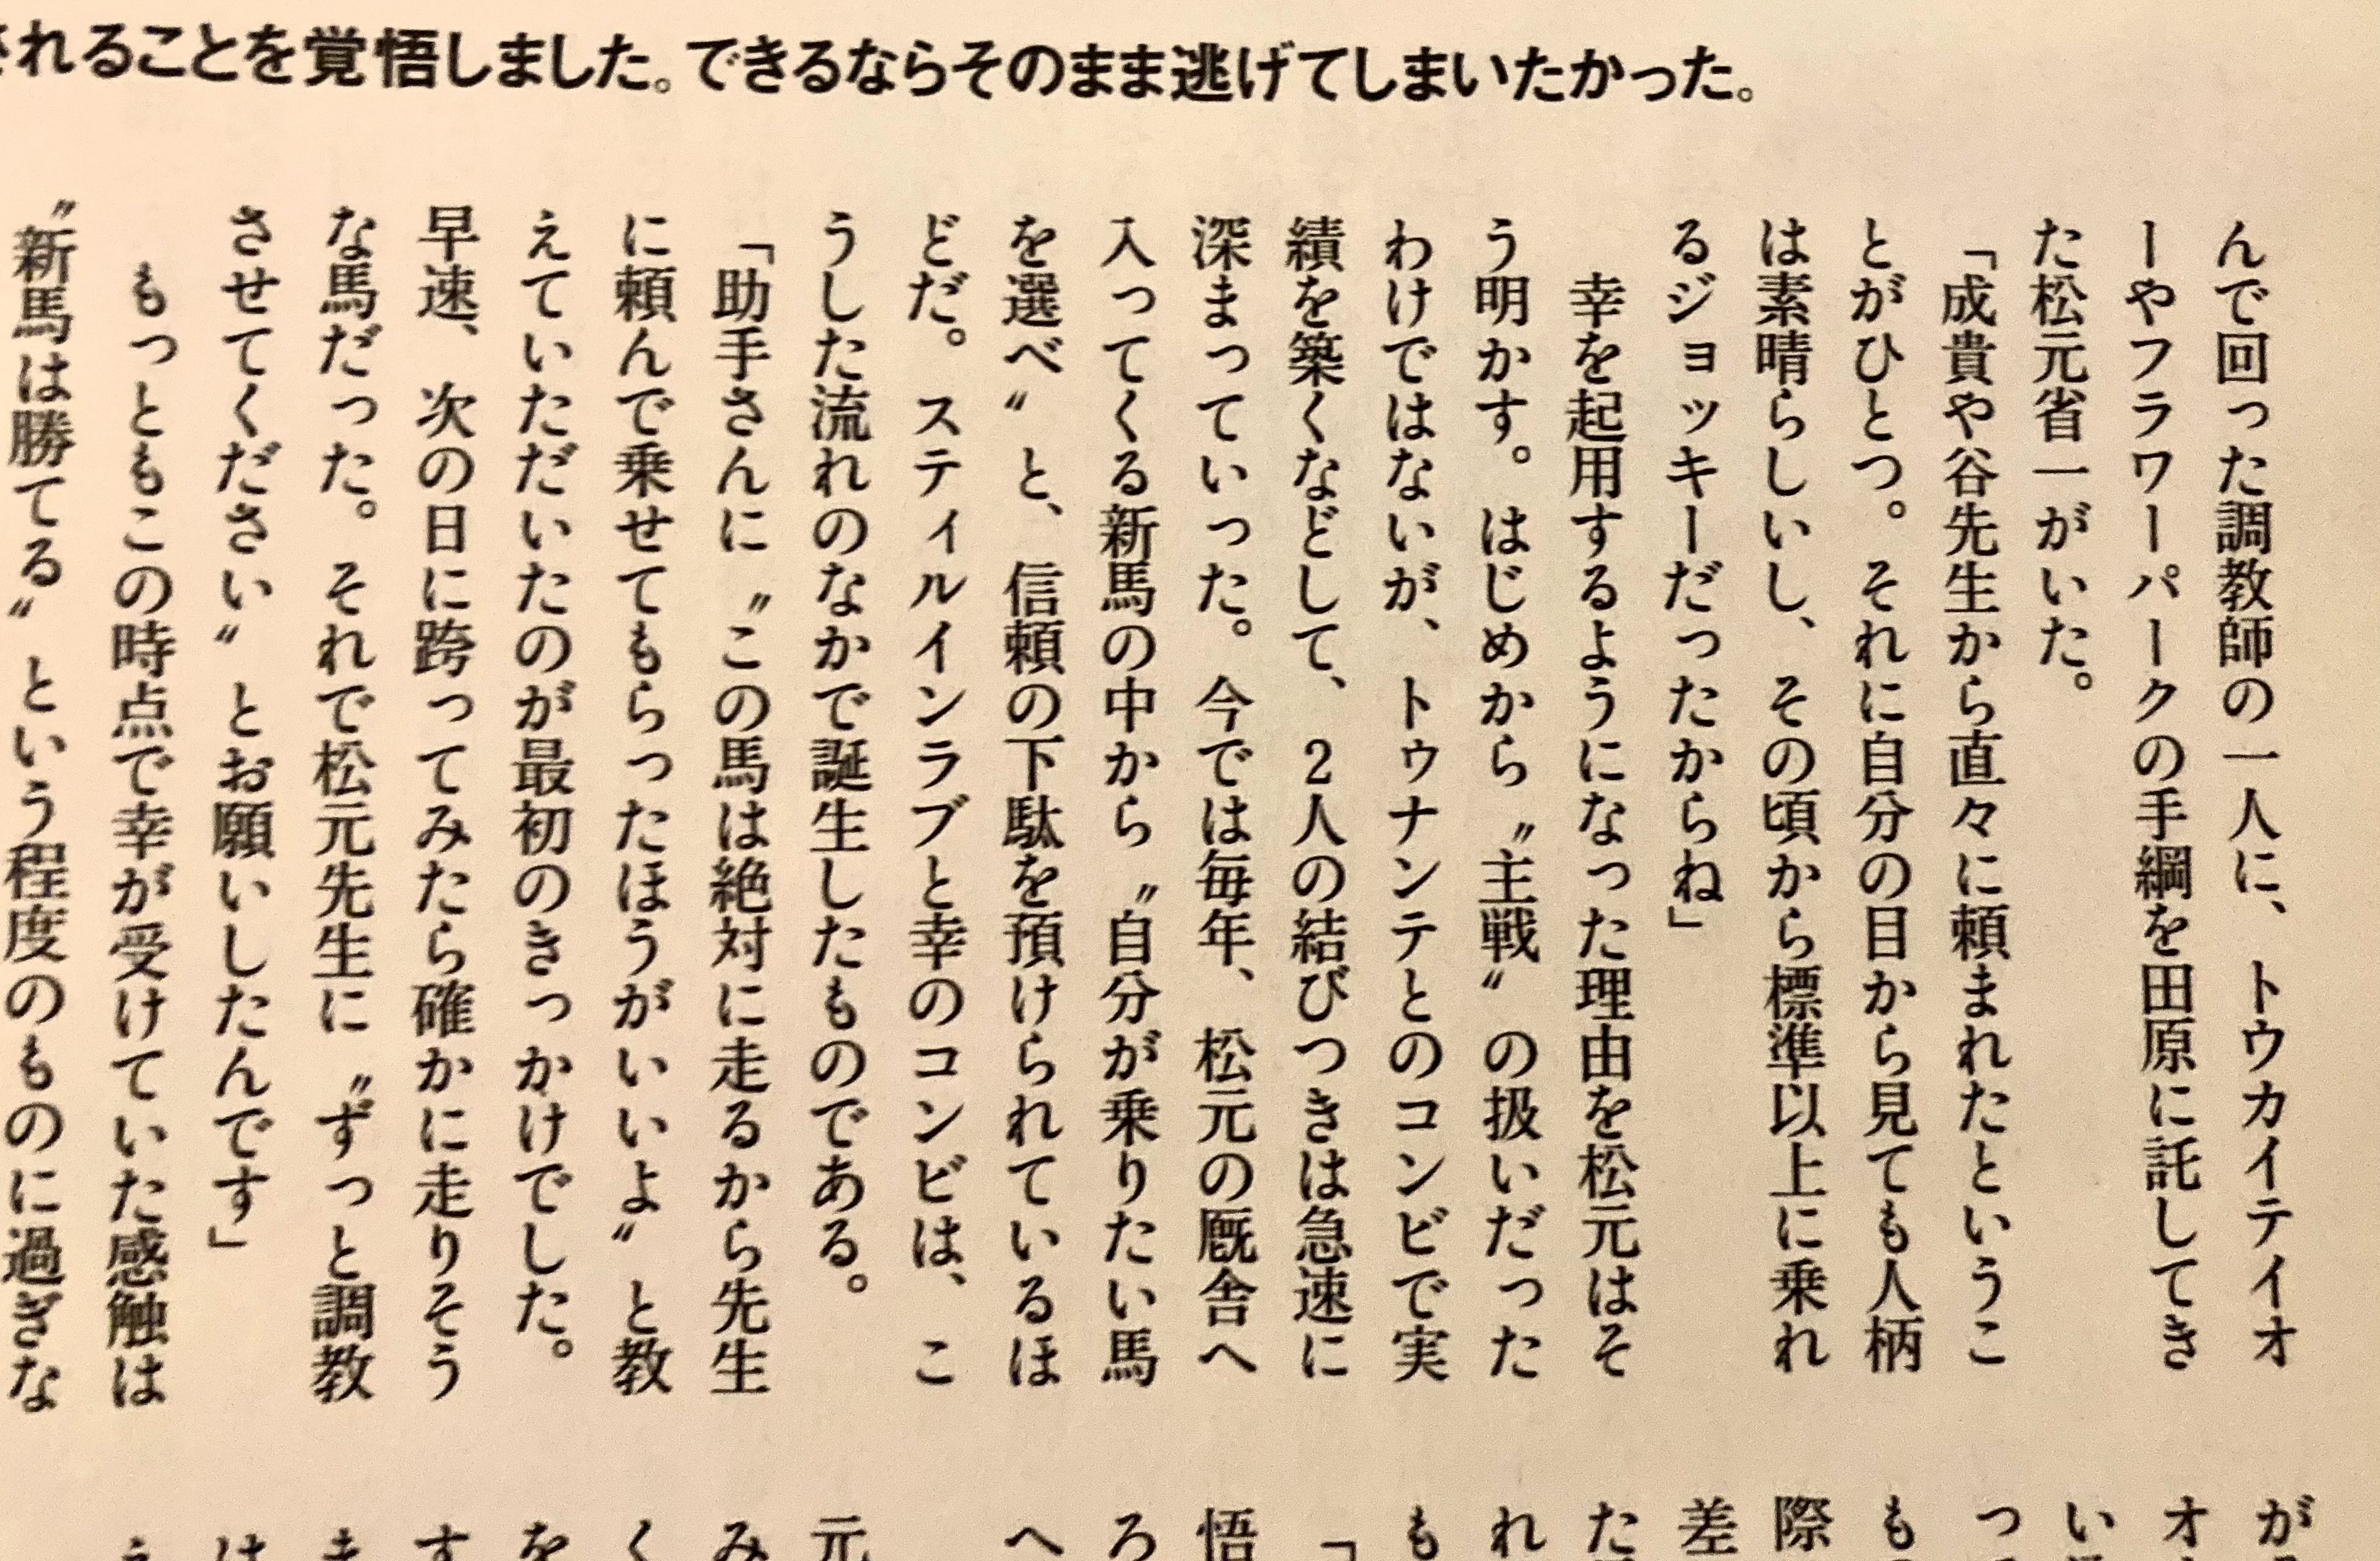 れることを覚悟しました。できるならそのまま逃げてしまいたかった。
んで回った調教師の一人に、トウカイテイオ
ーやフラワーパークの手綱を田原に託してき
た松元省一がいた。
「成貴や谷先生から直々に頼まれたというこ
とがひとつ。それに自分の目から見ても人柄
は素晴らしいし、その頃から標準以上に乗れ
るジョッキーだったからね」
幸を起用するようになった理由を松元はそ
う明かす。はじめから〝主戦〟の扱いだった
わけではないが、トゥナンテとのコンビで実
績を築くなどして、2人の結びつきは急速に
深まっていった。今では毎年、松元の厩舎へ
入ってくる新馬の中から〝自分が乗りたい馬
を選べ〟と、信頼の下駄を預けられているほ
どだ。スティルインラブと幸のコンビは、こ
うした流れのなかで誕生したものである。
「助手さんに〝この馬は絶対に走るから先生
に頼んで乗せてもらったほうがいいよ〟と教
えていただいたのが最初のきっかけでした。
早速、次の日に跨ってみたら確かに走りそう
な馬だった。それで松元先生に〝ずっと調教
させてください〟とお願いしたんです」
もっともこの時点で幸が受けていた感触は
〝新馬は勝てる〟という程度のものに過ぎな
が
オ
い
つ
も
際
差
た
れ
も
「
悟
ろ
へ
元
み
く
を
す
ま
は
え